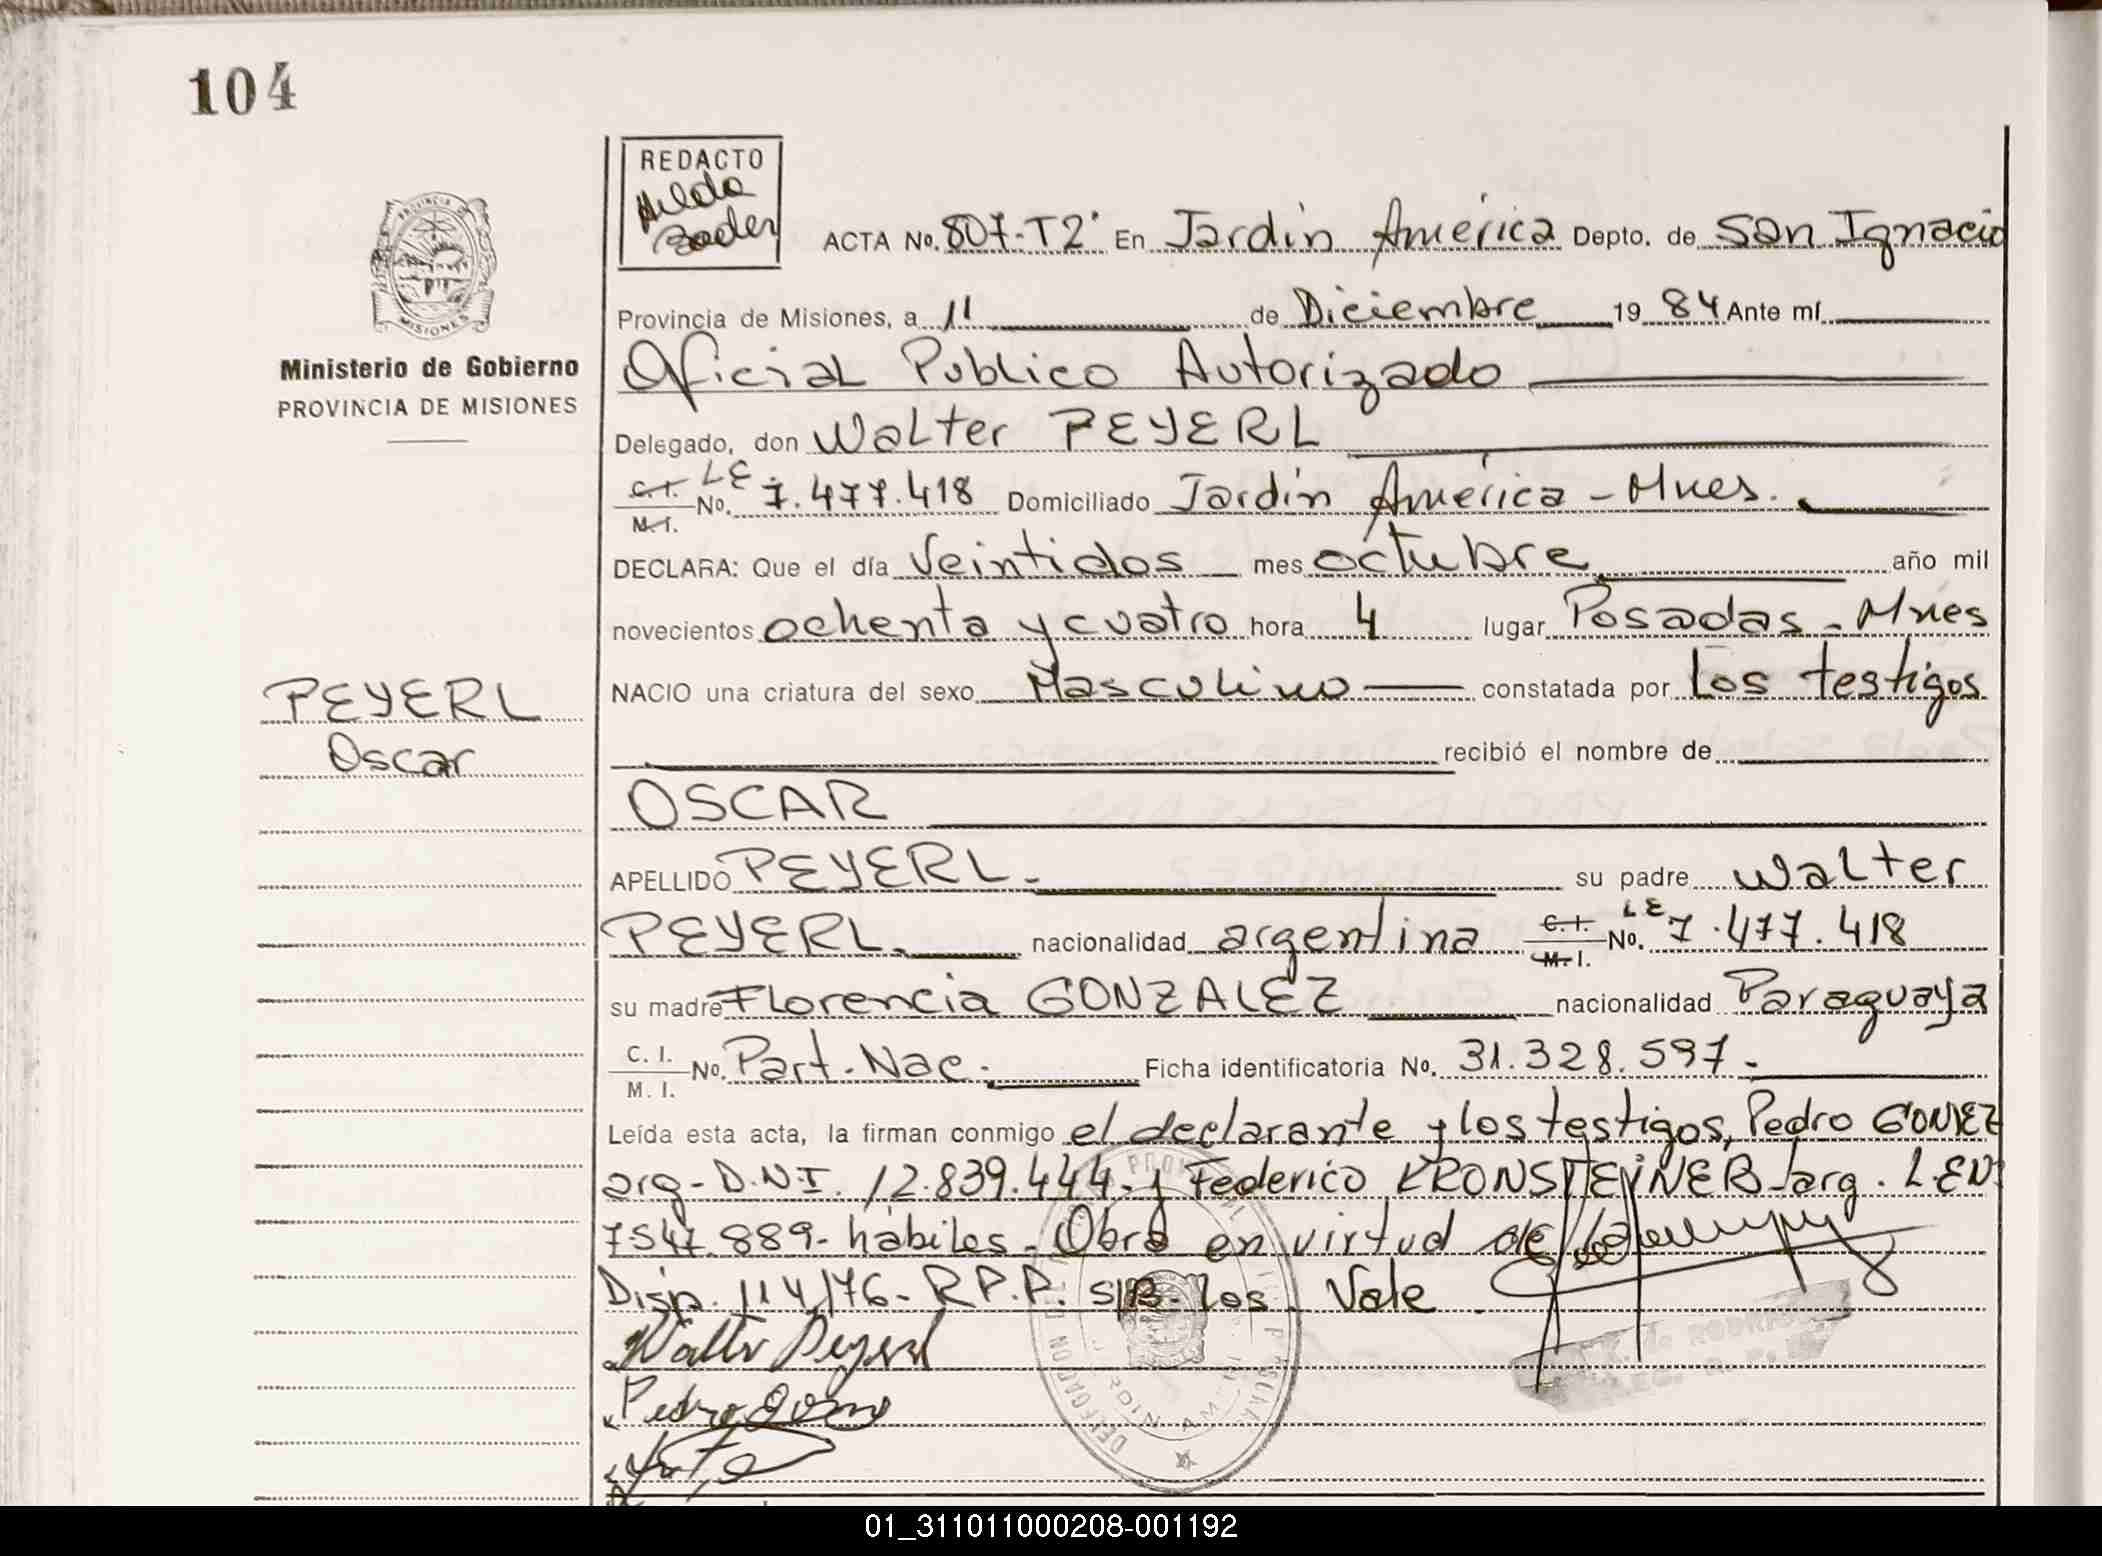 104
REDACTO
Hilda
Bader
ACTA No. 807-T2º En Jardín América Depto. de San Ignacio
Provincia de Misiones, a 11 de Diciembre 19 84 Ante mí
Oficial Publico Autorizado
Ministerio de Gobierno
PROVINCIA DE MISIONES
Delegado, don Walter PEYERL
C.I. M.I. LE No. 7.477.418 Domiciliado Jardín América - Mnes.
DECLARA: Que el día Veintidos mes octubre año mil
novecientos ochenta y cuatro hora 4 lugar Posadas - Mnes
NACIO una criatura del sexo Masculino constatada por los testigos
PEYERL
Oscar
recibió el nombre de
OSCAR
APELLIDO PEYERL. su padre Walter
PEYERL. nacionalidad argentina C.I. M.I. LE No. 7.477.418
su madre Florencia GONZALEZ nacionalidad Paraguaya
C. I. M. I. No. Part. Nac. Ficha identificatoria No. 31.328.597.
Leída esta acta, la firman conmigo el declarante y los testigos, Pedro GOMEZ
arg- D.N.I. 12.839.444- y Federico KRONSTEINER- arg. L.E Nº
7547.889- hábiles - Obra en virtud de
Disp. 114/76- R.P.P. Vale
Walter Peyerl
Pedro Gomez
01_311011000208-001192